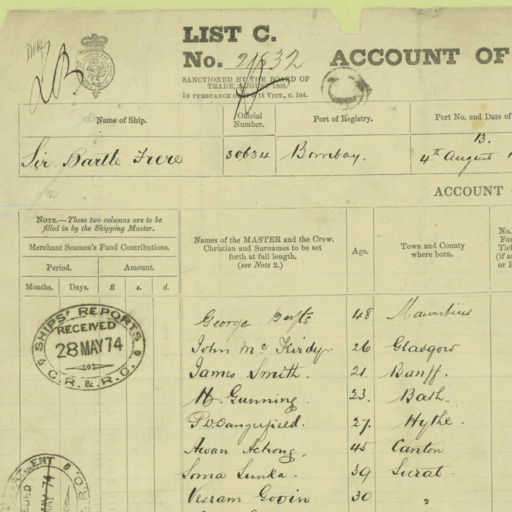 LIST C.
No. 21632 ACCOUNT OF
SANCTIONED BY THE BOARD OF
TRADE, AUGUST
IN PURSUANCE VICT., C. 104.
C
Name of Ship.
Official
Number.
Port of Registry.
Port No. and Date of
Sir Bartle Frere
30634
Bombay.
13.
4th August
ACCOUNT
NOTE.—These two columns are to be
filled in by the Shipping Master.
Merchant Seamen's Fund Contributions.
Period. Amount.
Months. Days. £ s. d.
Names of the MASTER and the Crew.
Christian and Surnames to be set
forth at full length.
(see Note 2.)
Age.
Town and County
where born.
No.
George 48 Mauritius
John McKirdy. 26 Glasgow
James Smith. 21 Banff.
H. Gunning 23. Bath.
P. D. Dangerfield. 27. Hythe.
Awan Achong. 45 Canton
Soma Lunka. 39 Surat
Vesram Govin 30 "
SHIPS' REPORTS
RECEIVED
28 MAY 74
C.R. & R.O.
MAY 74